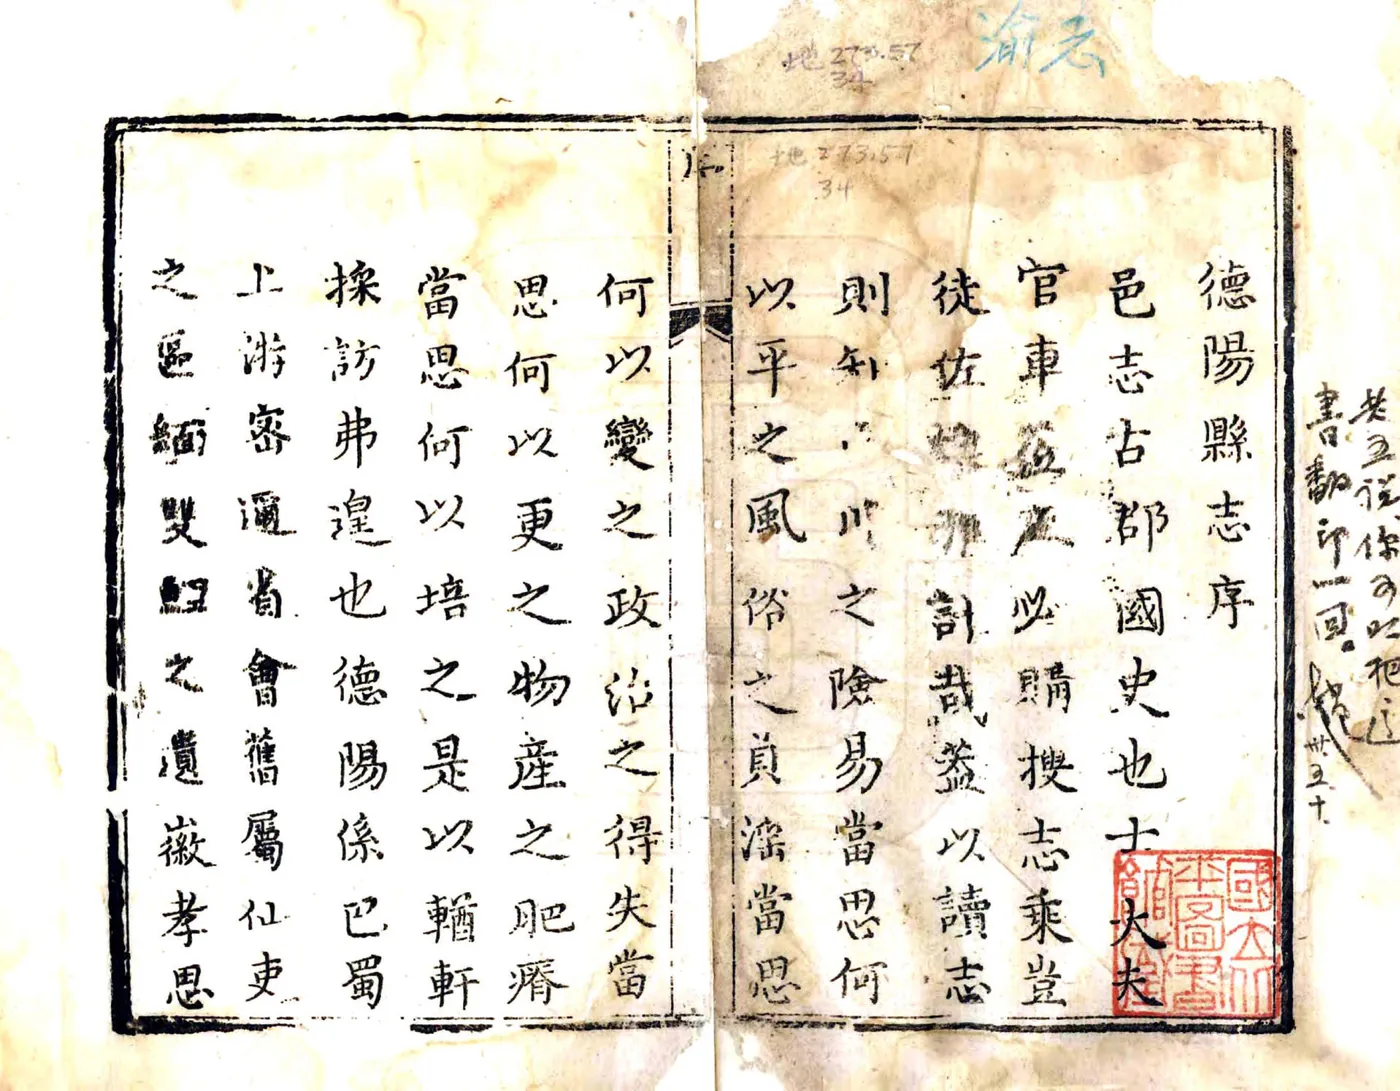 渝志
地 273.57
34
地 273.57
34
德陽縣志序
邑志古郡國史也士大夫
官車茲及必購搜志乘豈
徒佐計哉蓋以讀志
則知山川之險易當思何
以平之風俗之貞淫當思
序
何以變之政治之得失當
思何以更之物產之肥瘠
當思何以培之是以輶軒
採訪弗遑也德陽係巴蜀
上游密邇省會舊屬仙吏
之區緬雙之遺徽孝思
國立北
平圖書
館
書翻印一回。